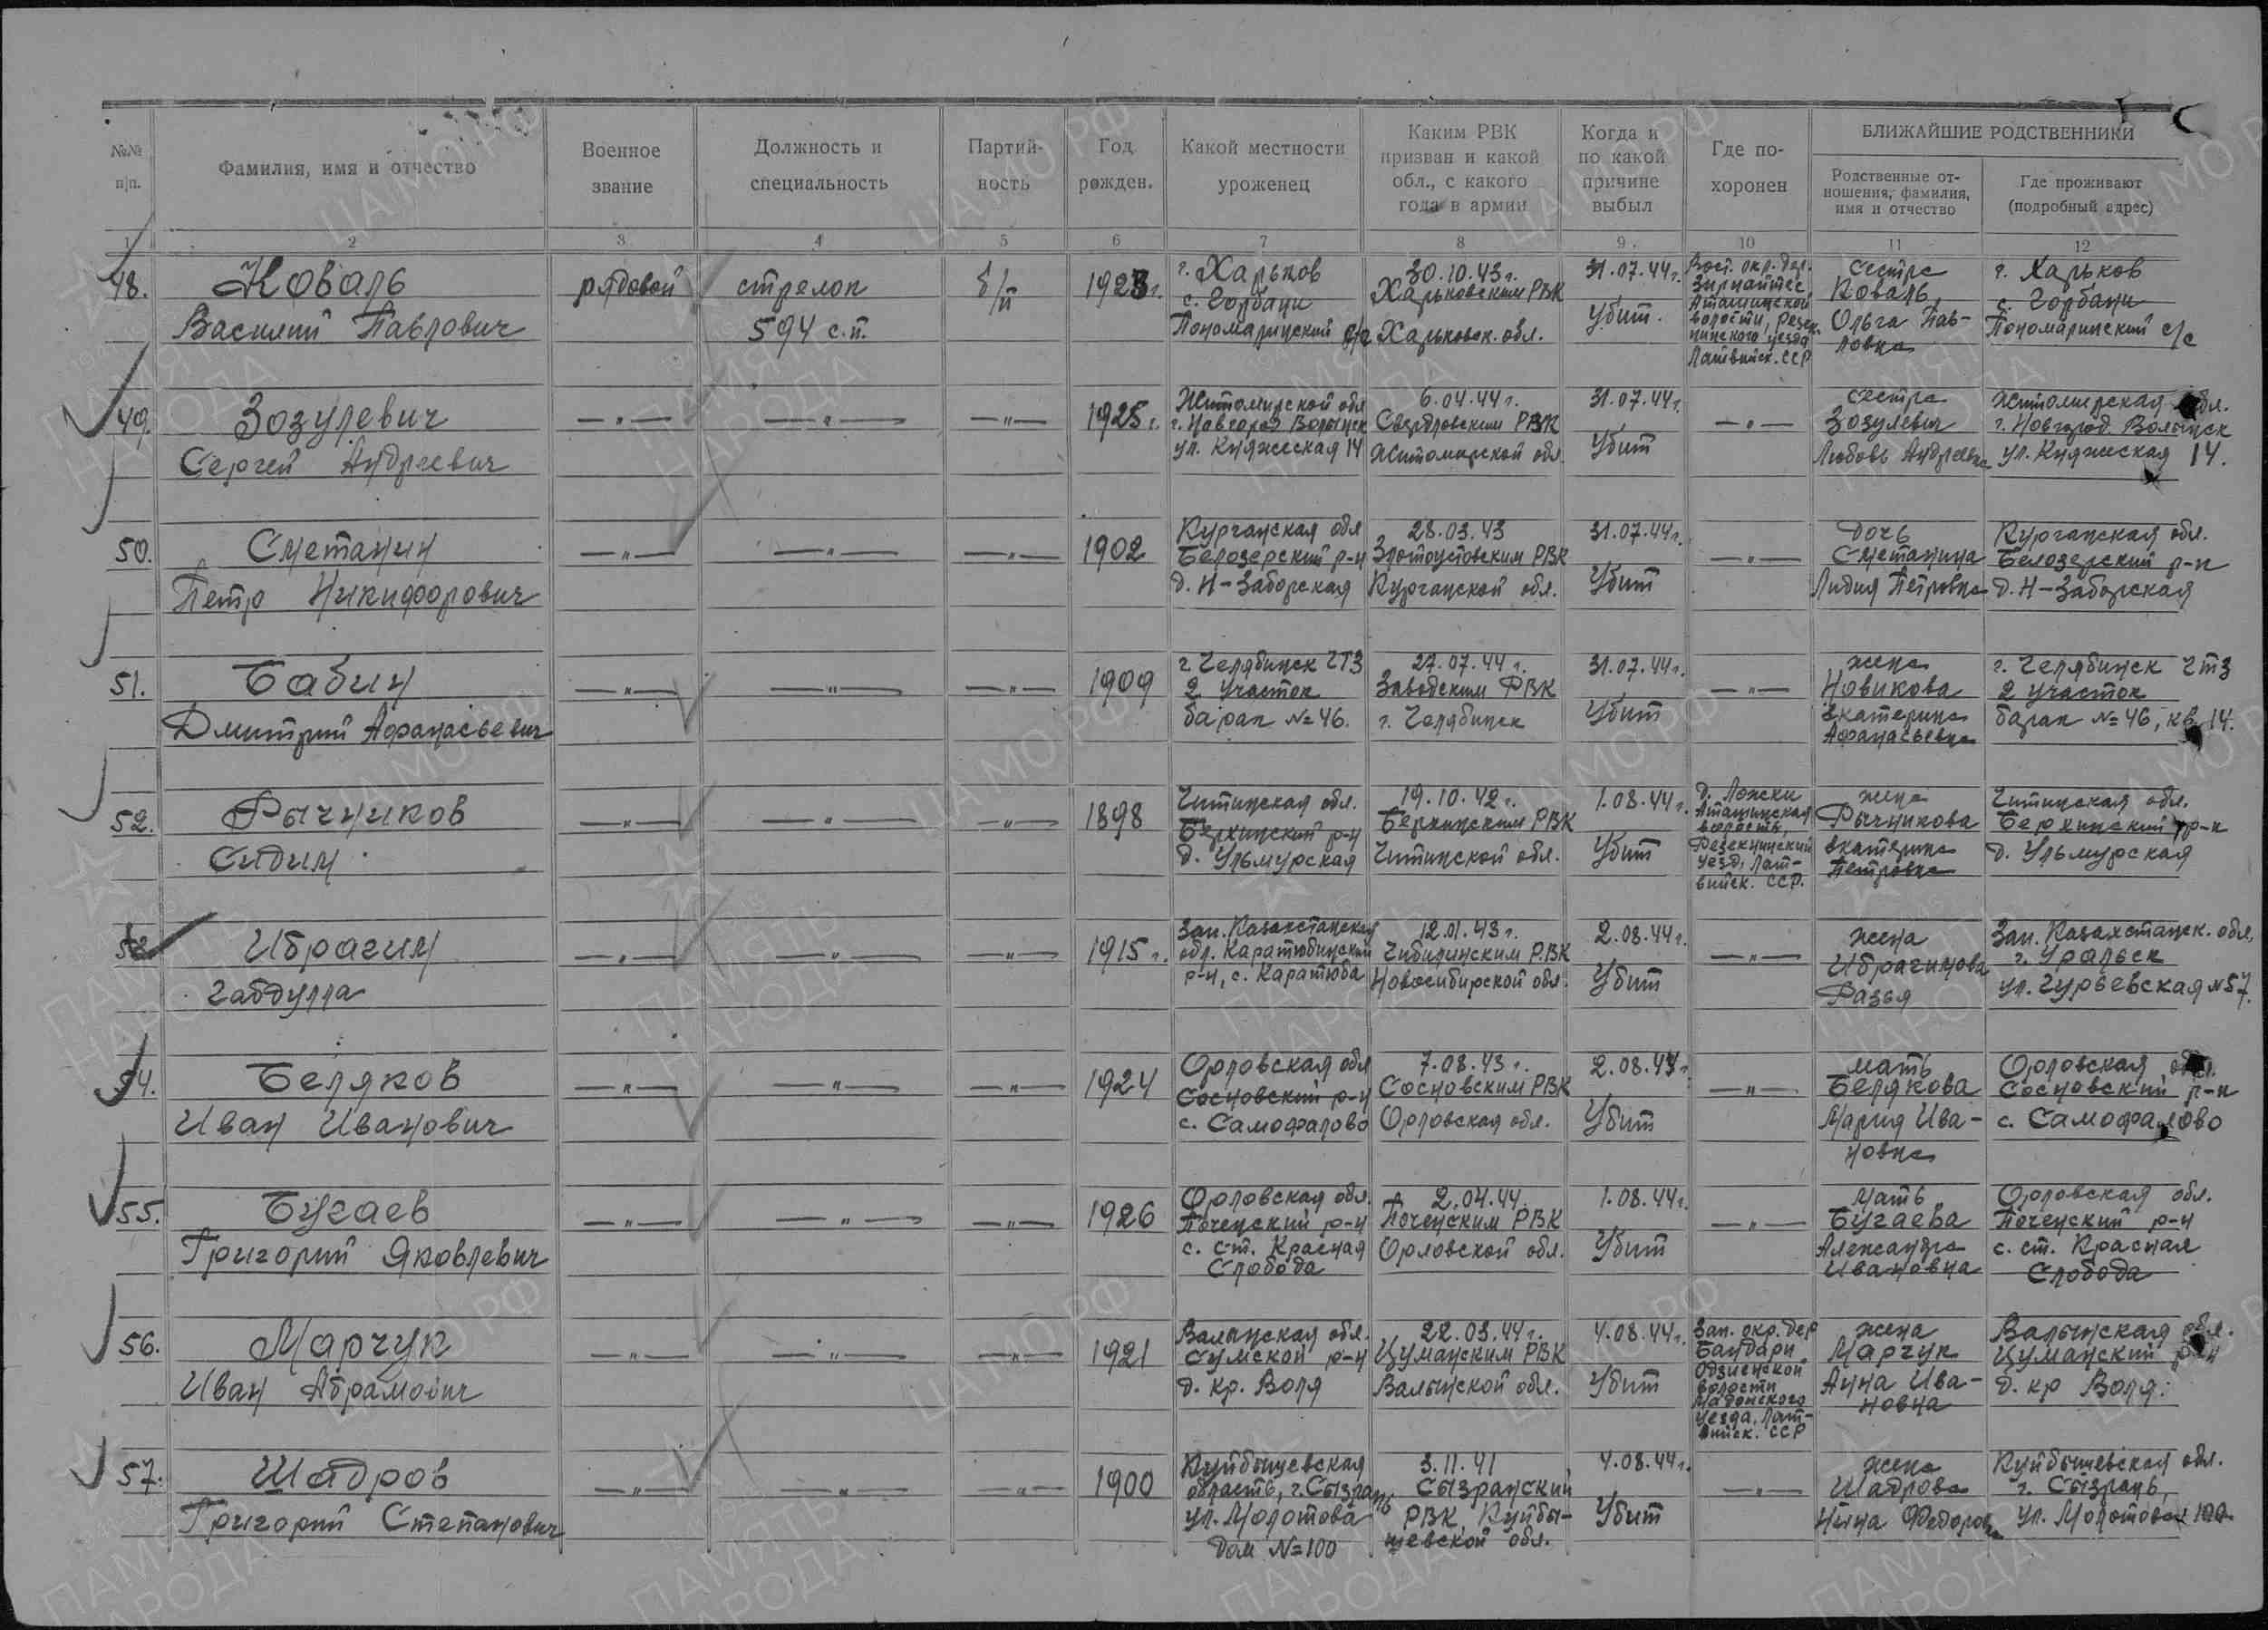 №№ п|п.
Фамилия, имя и отчество
Военное звание
Должность и специальность
Партий-ность
Год рожден.
Какой местности уроженец
Каким РВК призван и какой обл., с какого года в армии
Когда и по какой причине выбыл
Где по-хоронен
БЛИЖАЙШИЕ РОДСТВЕННИКИ
Родственные от-ношения, фамилия, имя и отчество
Где проживают (подробный адрес)
1 2 3 4 5 6 7 8 9 10 11 12
48.
Коваль
Василий Павлович
рядовой
стрелок
594 с.п.
б/п
1923г.
г. Харьков
с. Горбани
Пономаринский с/с
30.10.43г.
Харьковским РВК
Харьковск. обл.
31.07.44г.
Убит.
Вост. окр. дер.
Аташинской
волости, Резек-
ненского уезда
Латвийск. ССР
сестра
Коваль
Ольга Пав-
ловна
г. Харьков
с. Горбани
Пономаринский с/с
49.
Зозулевич
Сергей Андреевич
—"—
—"—
—"—
1925г.
Житомирской обл
г. Новгород Волынск
ул. Княжеская 14
6.04.44г.
Свердловским РВК
Житомирской обл.
31.07.44г.
Убит
—"—
сестра
Зозулевич
Любовь Андреевна
Житомирская обл.
г. Новгород Волынск
ул. Княжеская 14.
50.
Сметанин
Петр Никифорович
—"—
—"—
—"—
1902
Курганская обл
Белозерский р-н
д. Н-Заборская
28.03.43
Златоустовским РВК
Курганской обл.
31.07.44г.
Убит
—"—
дочь
Сметанина
Лидия Петровна
Курганская обл.
Белозерский р-н
д. Н-Заборская
51.
Бабин
Дмитрий Афанасьевич
—"—
—"—
—"—
1909
г. Челябинск ЧТЗ
2 участок
барак №46.
27.07.44г.
Заводским РВК
г. Челябинск
31.07.44г.
Убит
—"—
жена
Новикова
Екатерина
Афанасьевна
г. Челябинск ЧТЗ
2 участок
барак №46, кв. 14.
52.
Рычников
Сидим
—"—
—"—
—"—
1898
Читинская обл.
Беркинский р-н
д. Ульмурская
19.10.42г.
Беркинским РВК
Читинской обл.
1.08.44г.
Убит
д. Ложки
Аташинская
волость,
Резекненский
уезд, Лат-
вийск. ССР.
жена
Рычникова
Екатерина
Петровна
Читинская обл.
Беркинский р-н
д. Ульмурская
Ибрагим
Габдулла
—"—
—"—
—"—
1915г.
Зап. Казахстанская
обл. Каратюбинский
р-н, с. Каратюба
12.01.43г.
РВК
Новосибирской обл.
2.08.44г.
Убит
—"—
жена
Ибрагимова
Разья
Зап. Казахстанск. обл,
г. Уральск
ул. Гурьевская №57.
54.
Беляков
Иван Иванович
—"—
—"—
—"—
1924
Орловская обл
Сосновский р-н
с. Самофалово
7.08.43г.
Сосновским РВК
Орловская обл.
2.08.44г.
Убит
—"—
мать
Белякова
Мария Ива-
новна
Орловская обл.
Сосновский р-н
с. Самофалово
55.
Бугаев
Григорий Яковлевич
—"—
—"—
—"—
1926
Орловская обл.
Поченский р-н
с. ст. Красная
Слобода
2.04.44.
Поченским РВК
Орловской обл.
1.08.44г.
Убит
—"—
мать
Бугаева
Александра
Ивановна
Орловская обл.
Поченский р-н
с. ст. Красная
Слобода
56.
Марчук
Иван Абрамович
—"—
—"—
—"—
1921
Валынская обл.
Сумской р-н
д. кр. Воля
22.03.44г.
Цуманским РВК
Валынской обл.
4.08.44г.
Убит
Зап. окр. дер
Бандари
Одзиенской
волости
Мадонского
уезда, Лат-
вийск. ССР
жена
Марчук
Анна Ива-
новна
Валынская обл.
Цуманский р-н
д. кр Воля.
57.
Шадров
Григорий Степанович
—"—
—"—
—"—
1900
Куйбышевская
область, г. Сызрань
ул. Молотова
дом №100
3.11.41
Сызранский
РВК Куйбы-
шевской обл.
4.08.44г.
Убит
—"—
жена
Шадрова
Нина Федоровна
Куйбышевская обл.
г. Сызрань,
ул. Молотова 100
ПАМЯТЬ НАРОДА
ЦАМО РФ